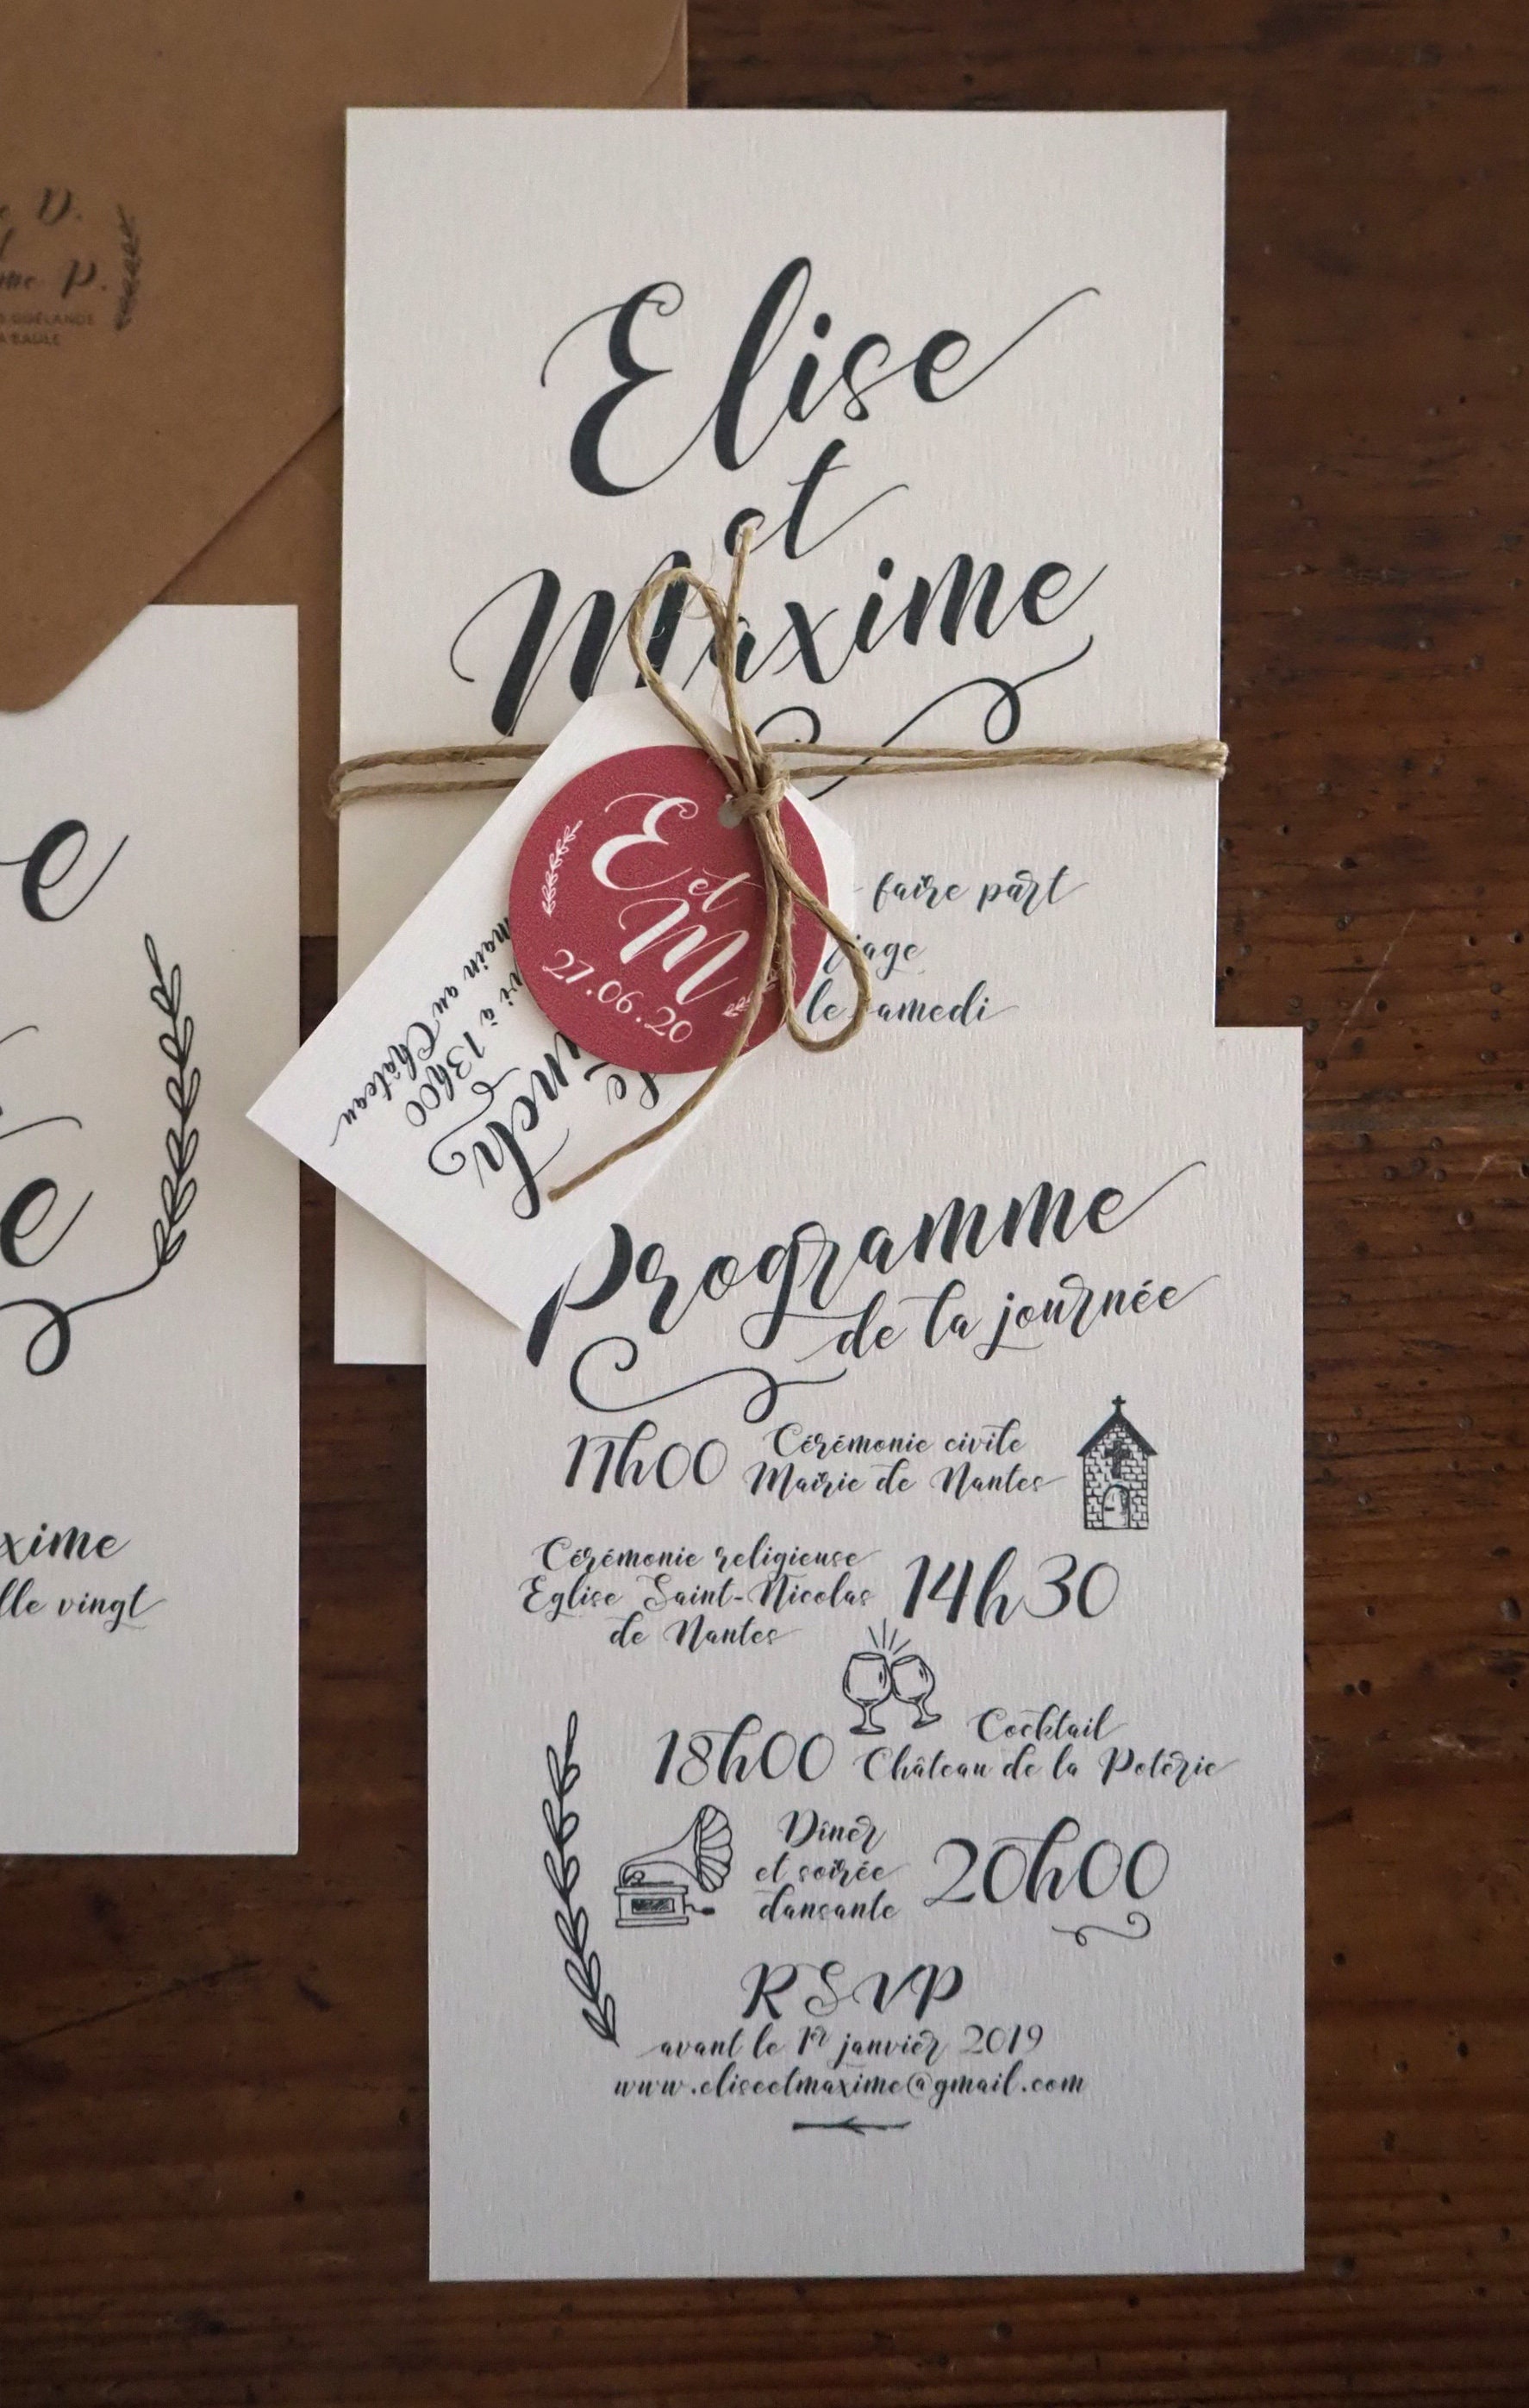 D.
P.
Elise
et
Maxime
faire part
le samedi
E
et
M
27.06.20
à 13h00
main au Château
e
e
xime
lle vingt
Programme
de la journée
11h00
Cérémonie civile
Mairie de Nantes
Cérémonie religieuse
Eglise Saint-Nicolas
de Nantes
14h30
18h00
Cocktail
Château de la Poterie
Dîner
et soirée
dansante
20h00
RSVP
avant le 1er janvier 2019
www.eliseetmaxime@gmail.com